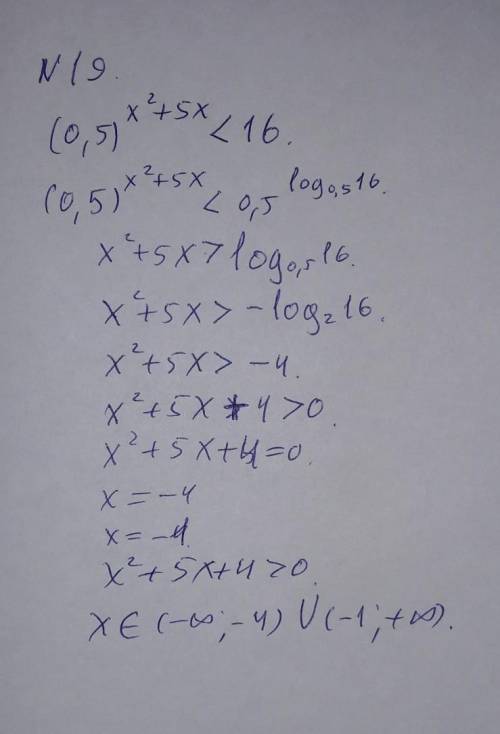 N19.
(0,5)^{x²+5x} < 16.
(0,5)^{x²+5x} < 0,5^{log_{0,5}16}.
x²+5x > log_{0,5}16.
x²+5x > -log₂16.
x²+5x > -4.
x²+5x+4 > 0.
x²+5x+4=0.
x = -4
x = -1
x²+5x+4 > 0.
x ∈ (-∞; -4) ∪ (-1; +∞).